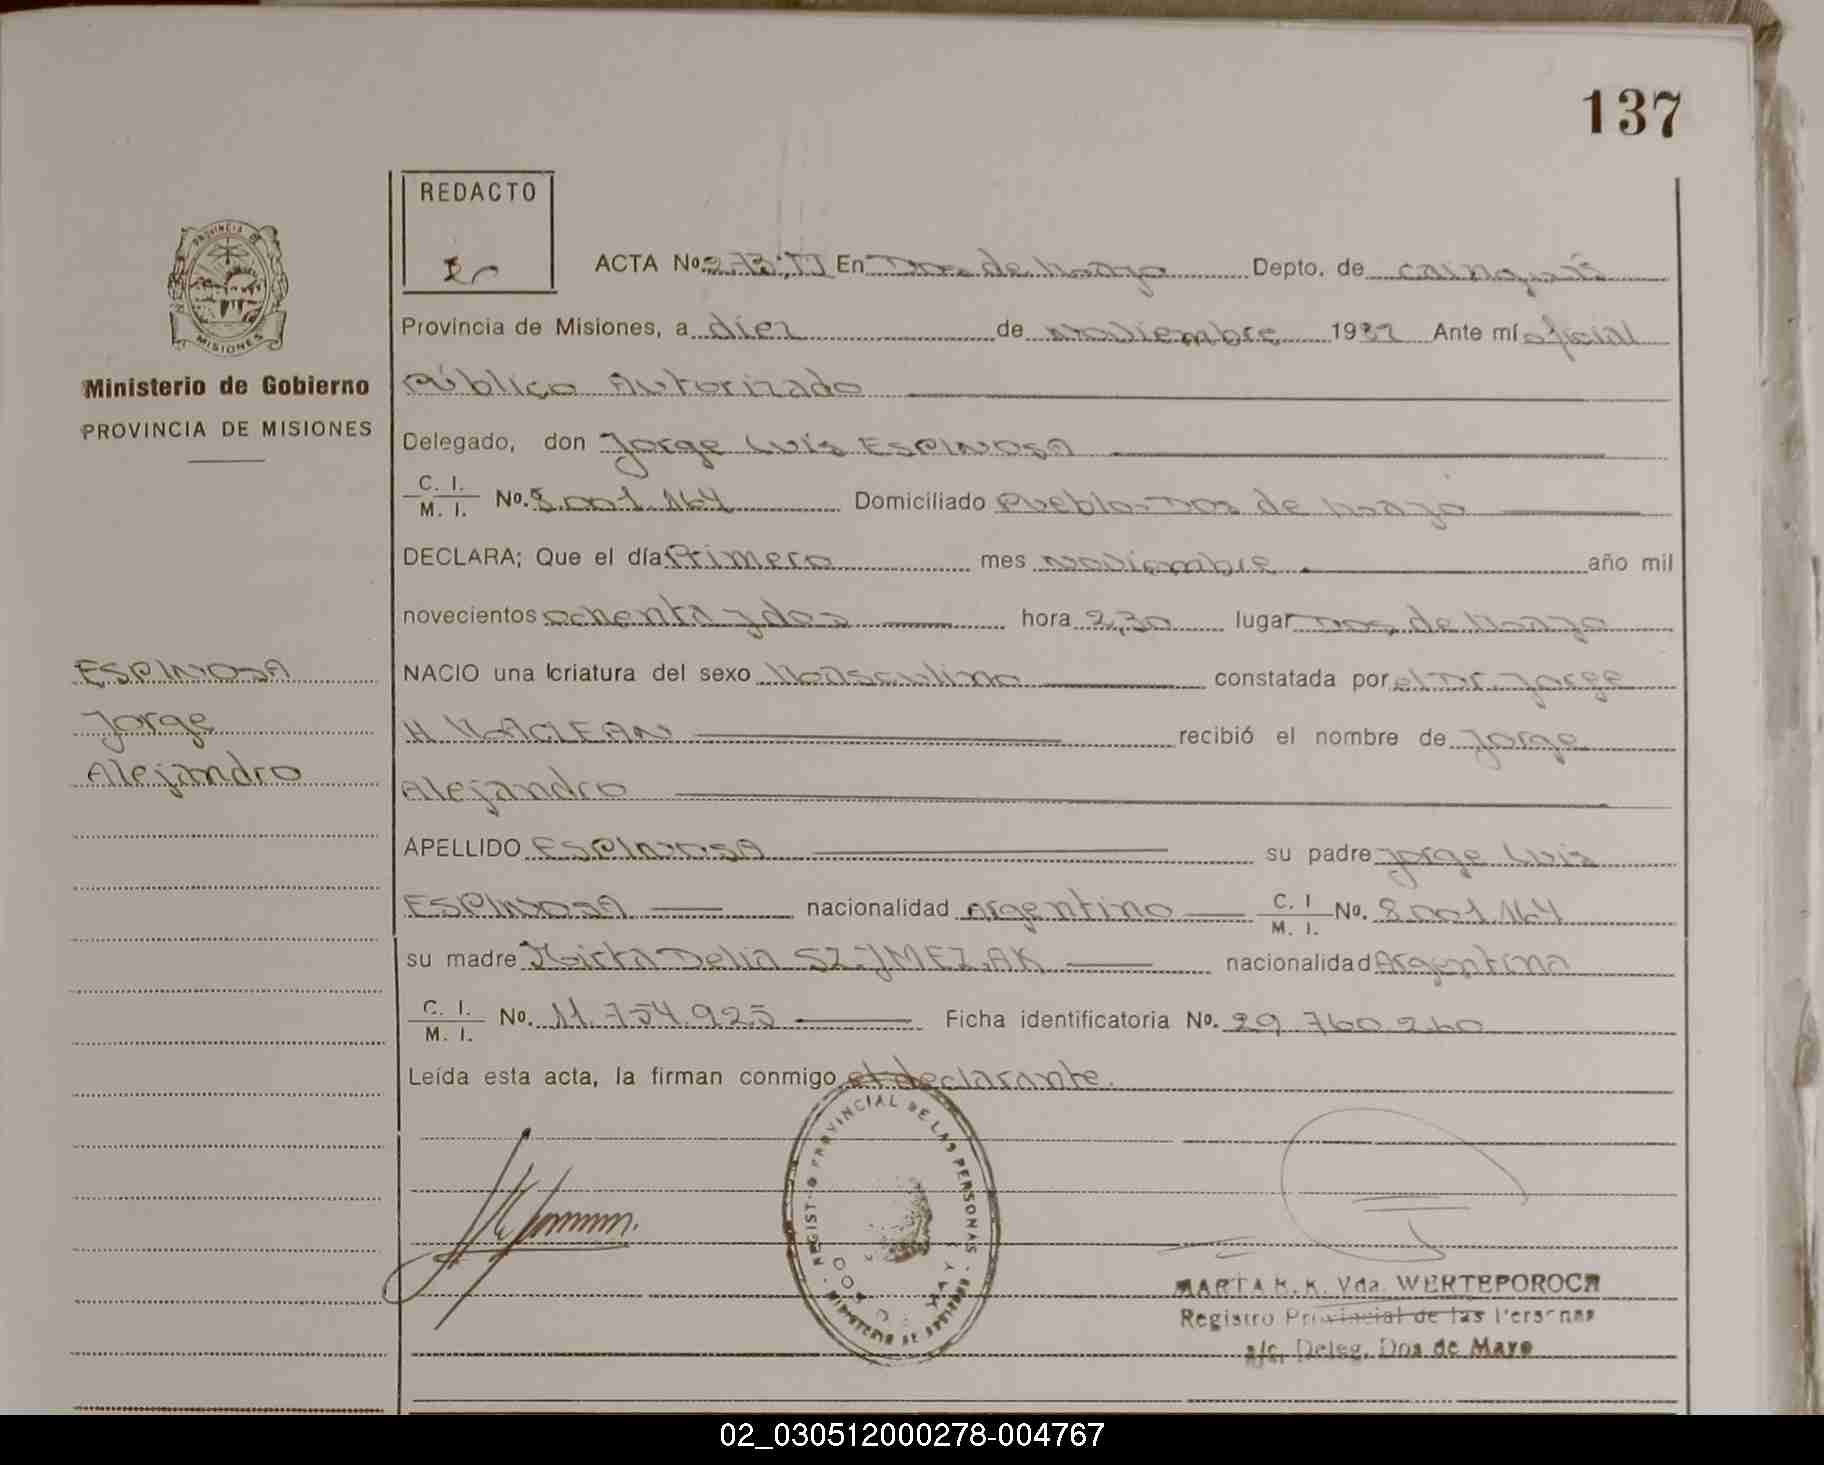 137
REDACTO
PROVINCIA DE MISIONES
Ministerio de Gobierno
PROVINCIA DE MISIONES
ACTA No. 273 TI En Dos de Mayo Depto. de Cainguás
Provincia de Misiones, a diez de noviembre 1982 Ante mí oficial
Público Autorizado
Delegado, don Jorge Luis ESPINOSA
C. I. / M. I. No. 8.001.164 Domiciliado Pueblo Dos de Mayo
DECLARA; Que el día Primero mes noviembre año mil
novecientos ochenta y dos hora 2,30 lugar Dos de Mayo
NACIO una criatura del sexo Masculino constatada por el Dr. Jorge
H MACLEAN recibió el nombre de Jorge
Alejandro
APELLIDO ESPINOSA su padre Jorge Luis
ESPINOSA nacionalidad Argentino C. I / M. I. No. 8.001.164
su madre Mirta Delia SZYMEZAK nacionalidad Argentina
C. I. / M. I. No. 11.754.925 Ficha identificatoria No. 29.760.260
Leída esta acta, la firman conmigo el declarante.
ESPINOSA
Jorge
Alejandro
REGIST PROVINCIAL DE LAS PERSONAS
MINISTERIO DE GOBIERNO
MARTA K. Vda. WERTEPOROCH
Registro Provincial de las Personas
a/c. Deleg. Dos de Mayo
02_030512000278-004767